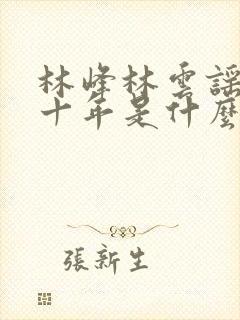 林峰林雲謠
十年是什麼
張新生